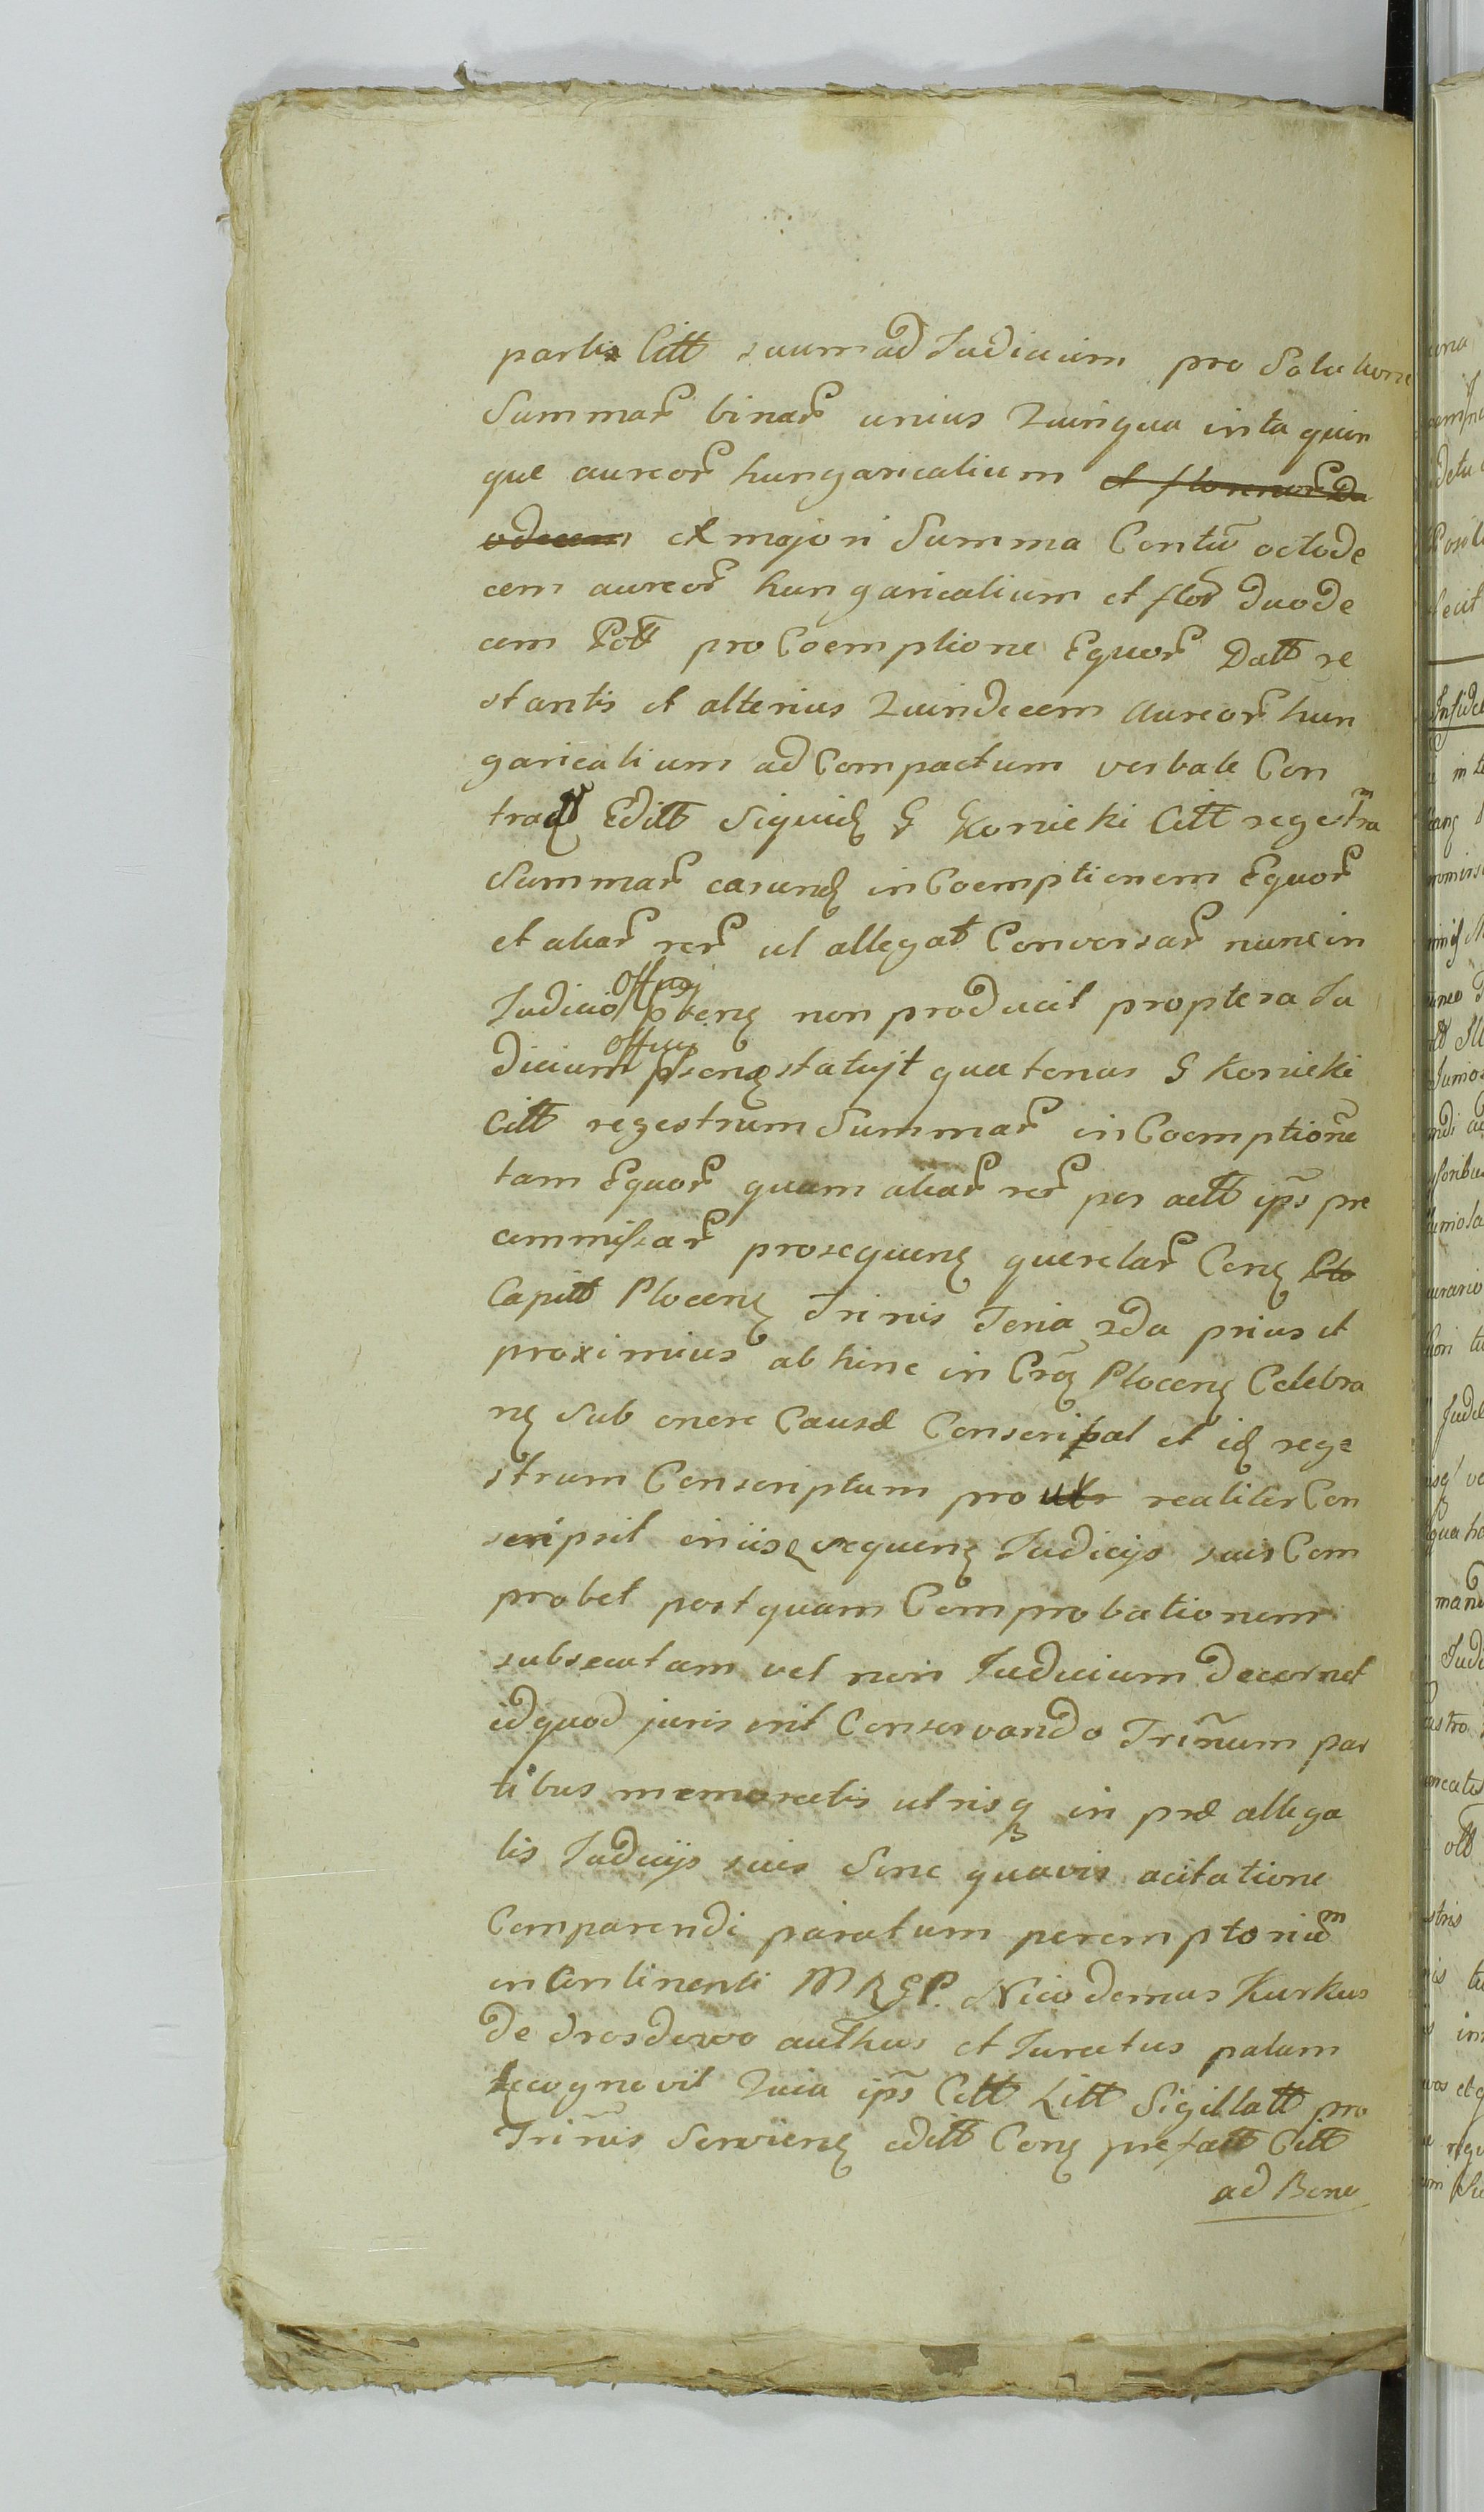 partis Citt suum ad Judicium pro Solutione
Summar binar unius Quinqua inta quin
que aureor hungaricalium et florenor Du
odecem ex majori Summa Centu octode
cem aureor hungaricalium et flor duode
cem Poll pro Coemptione Equor Datt re
stantis et alterius Quindecem Aureor hun
garicalium ad Compactum verbale Con
tract Editt Siquid G Konicki Citt regestra
Summar earund in Coemptionem Equor
et aliar rer ut allegat Conversar nunc in
Judicio Officij pteng non producit propterea Ju
dicium officij psens statujt quatenus G Konicki
Citt regestrum Summar in Coemptione
tam Equor quam aliar rer per actt ips pre
commissar prosequeng querelar Ceng Plo
Capitt Ploceng Trinis Feria 2da prius et
proximius ab hinc in Cro Ploceng Celebra
ng Sub onere Causæ Conscribat et id rege
strum Conscriptum pro ut realiter Con
scripsit in iisq sequeng Judicijs suis Com
probet post quam Comprobationem
subsecutam vel non Judicium decernet
id quod juris erit Conservando Trinum par
tibus memoratis utrisq in præ allega
tis Judicijs suis Sine quavis acitatione
Comparendi paratum peremptorium
in Continenti MRGP. Nicodemus Kurkus
de drosdowo authus et Juratus palam
recognovit Quia ips Citt Litt Sigillatt pro
Trinis Servieng editt Ceng prefatt Citt
ad Bona